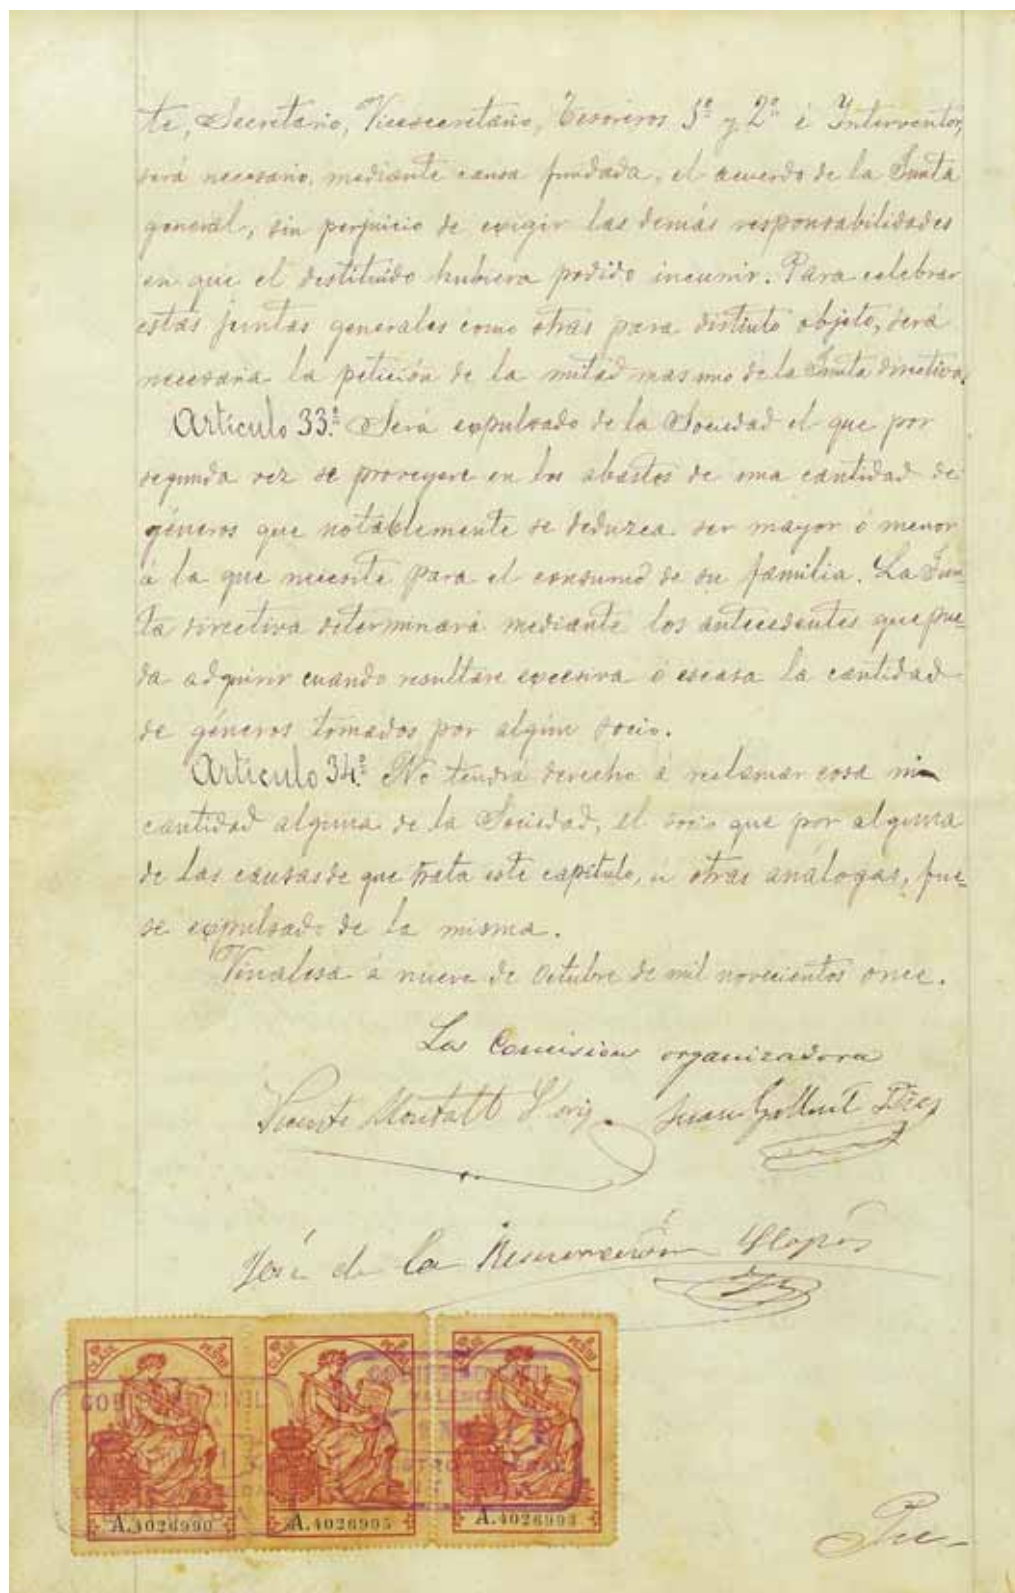 te, Secretario, Vicesecretario, Tesoreros 1º y 2º é Interventor,
será necesario, mediante causa fundada, el acuerdo de la Junta
general, sin perjuicio de exigir las demás responsabilidades
en que el destituido hubiera podido incurrir. Para celebrar
estas juntas generales como otras para distinto objeto, será
necesaria la petición de la mitad mas uno de la Junta directiva.
Artículo 33.º Será expulsado de la Sociedad el que por
segunda vez se proveyere en los abastos de una cantidad de
géneros que notablemente se deduzca ser mayor ó menor
á la que necesite para el consumo de su familia. La Jun-
ta directiva determinará mediante los antecedentes que pue-
da adquirir cuando resultare excesiva ó escasa la cantidad
de géneros tomados por algún socio.
Artículo 34.º No tendrá derecho á reclamar cosa ni
cantidad alguna de la Sociedad, el socio que por alguna
de las causas de que trata este capítulo, ú otras análogas, fue-
se expulsado de la misma.
Vinalesa á nueve de Octubre de mil novecientos once.
La Comision organizadora
Vicente Montalt Juan Gallent
José de la Resurrección Llopis
CLASE
GOBIERNO CIVIL
GOBIERNO CIVIL
VALENCIA
A.4026990 A.4026995 A.4026993
Pre-